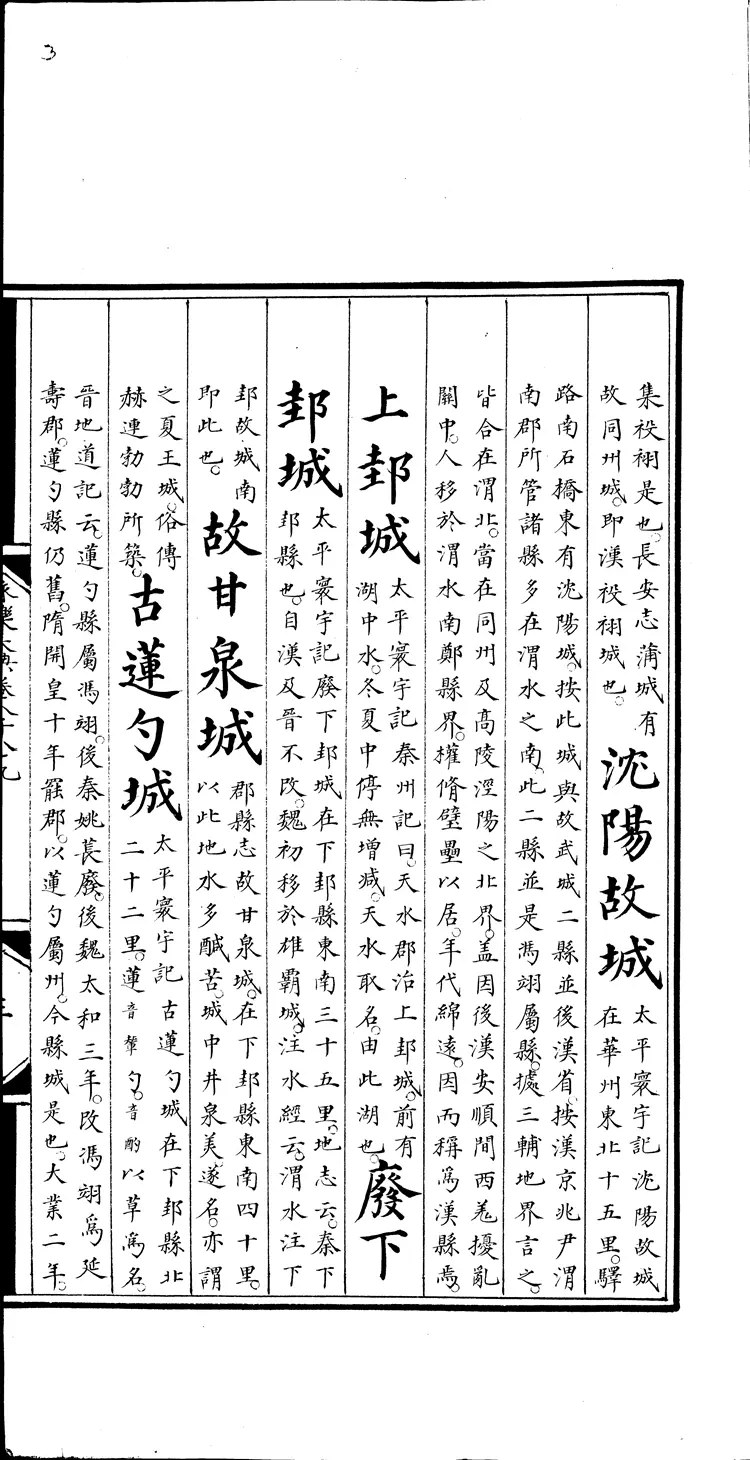 3
集祋祤是也。長安志蒲城有
故同州城。即漢祋祤城也。
沈陽故城
太平寰宇記沈陽故城
在華州東北十五里。驛
路南石橋東有沈陽城。按此城與故武城二縣並後漢省。按漢京兆尹渭
南郡所管諸縣多在渭水之南。此二縣並是馮翊屬縣。據三輔地界言之。
皆合在渭北。當在同州及高陵涇陽之北界。蓋因後漢安順間西羌擾亂
關中。人移於渭水南鄭縣界。權脩壁壘以居。年代綿遠。因而稱爲漢縣焉。
上邽城
太平寰宇記秦州記曰。天水郡治上邽城。前有
湖中水。冬夏中停無增減。天水取名。由此湖也。
廢下
邽城
太平寰宇記廢下邽城在下邽縣東南三十五里。地志云。秦下
邽縣也。自漢及晉不改。魏初移於雄霸城。注水經云。渭水注下
邽故城南
即此也。
故甘泉城
郡縣志故甘泉城。在下邽縣東南四十里。
以此地水多醎苦。城中井泉美。遂名。亦謂
之夏王城。俗傳
赫連勃勃所築。
古蓮勺城
太平寰宇記古蓮勺城在下邽縣北
二十二里。蓮音輦勺。音酌以草爲名。
晉地道記云。蓮勺縣屬馮翊。後秦姚萇廢。後魏太和三年。改馮翊爲延
壽郡。蓮勺縣仍舊。隋開皇十年罷郡。以蓮勺屬州。今縣城是也。大業二年。